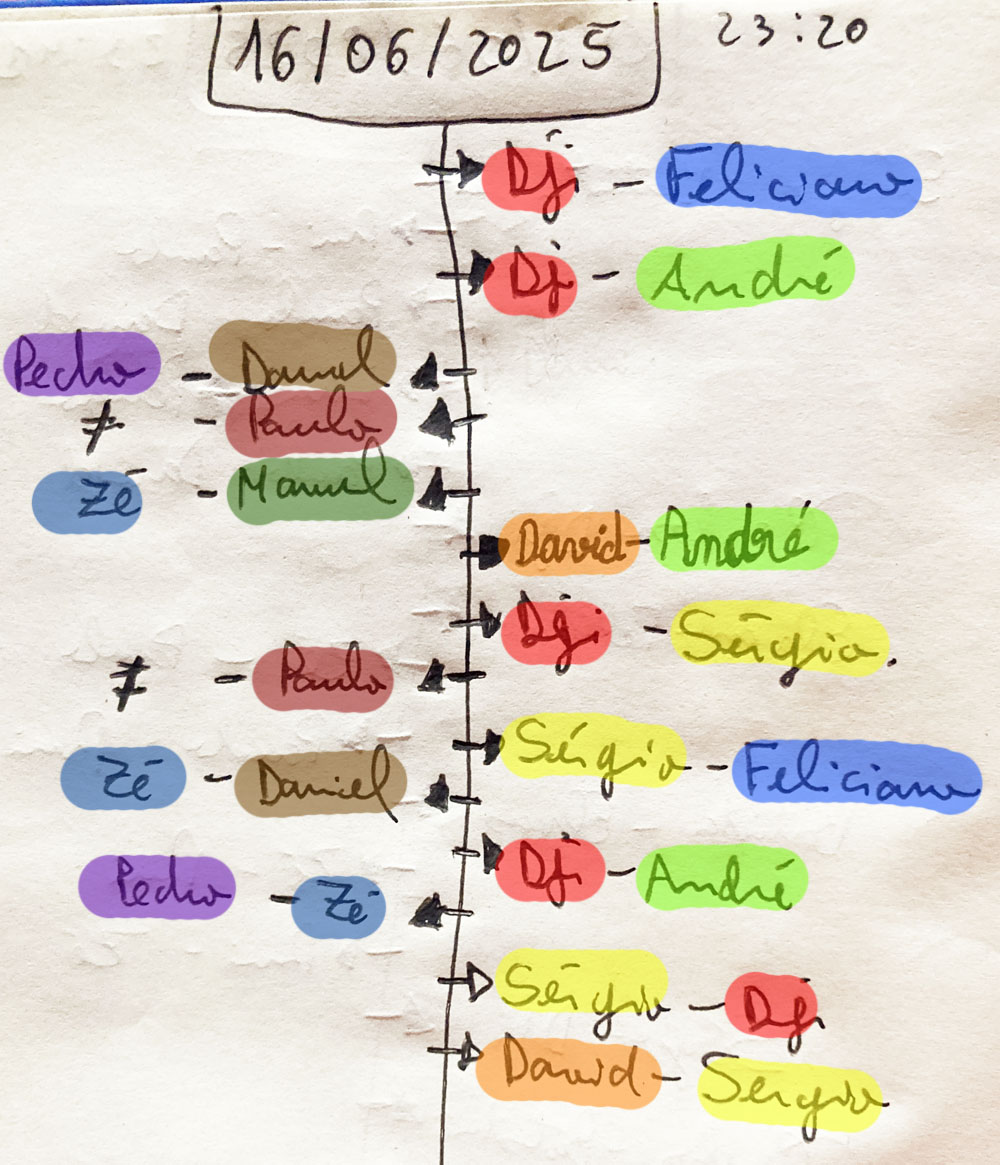 16/06/2025 23:20
Dji - Feliciano
Dji - André
Pedro - Daniel
≠ - Paulo
Zé - Manuel
David - André
Dji - Sérgio.
≠ - Paulo
Sérgio - Feliciano
Zé - Daniel
Dji - André
Pedro - Zé
Sérgio - Dji
David - Sérgio